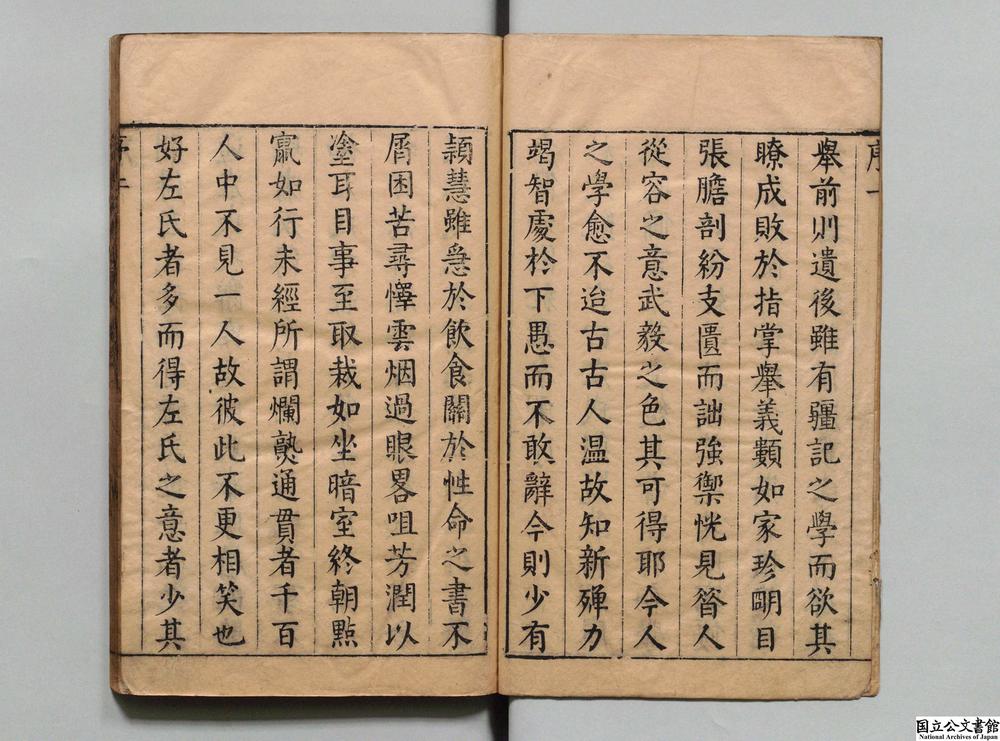 序一
舉前則遺後雖有彊記之學而欲其
瞭成敗於指掌舉義類如家珍明目
張膽剖紛支匱而詘強禦恍見昝人
從容之意武毅之色其可得耶今人
之學愈不迨古古人温故知新殫力
竭智處於下愚而不敢辭今則少有
頴慧雖急於飲食關於性命之書不
屑困苦尋懌雲烟過眼畧咀芳潤以
塗耳目事至取裁如坐暗室終朝㸃
竄如行未經所謂爛熟通貫者千百
人中不見一人故彼此不更相笑也
好左氏者多而得左氏之意者少其
国立公文書館
National Archives of Japan